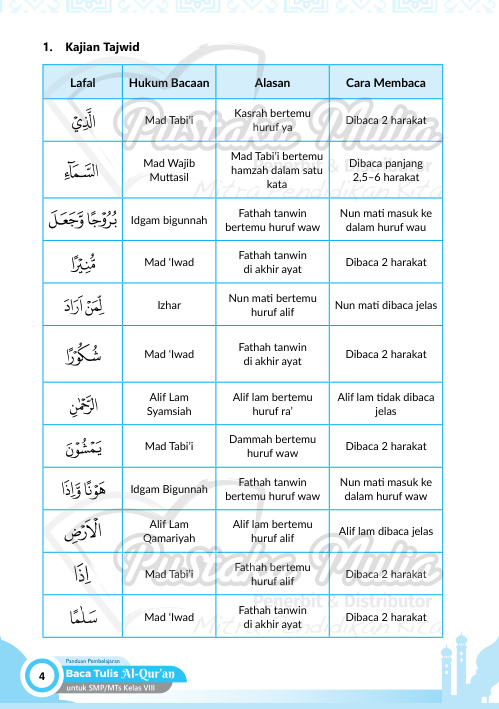 1. Kajian Tajwid
Lafal Hukum Bacaan Alasan Cara Membaca
الَّذِيْ Mad Tabi'i Kasrah bertemu huruf ya Dibaca 2 harakat
السَّمَاۤءِ Mad Wajib Muttasil Mad Tabi'i bertemu hamzah dalam satu kata Dibaca panjang 2,5–6 harakat
بُرُوْجًا وَّجَعَلَ Idgam bigunnah Fathah tanwin bertemu huruf waw Nun mati masuk ke dalam huruf wau
مُّنِيْرًا Mad 'Iwad Fathah tanwin di akhir ayat Dibaca 2 harakat
لِّمَنْ اَرَادَ Izhar Nun mati bertemu huruf alif Nun mati dibaca jelas
شُكُوْرًا Mad 'Iwad Fathah tanwin di akhir ayat Dibaca 2 harakat
الرَّحْمٰنِ Alif Lam Syamsiah Alif lam bertemu huruf ra' Alif lam tidak dibaca jelas
يَمْشُوْنَ Mad Tabi'i Dammah bertemu huruf waw Dibaca 2 harakat
هَوْنًا وَّاِذَا Idgam Bigunnah Fathah tanwin bertemu huruf waw Nun mati masuk ke dalam huruf waw
الْاَرْضِ Alif Lam Qamariyah Alif lam bertemu huruf alif Alif lam dibaca jelas
اِذَا Mad Tabi'i Fathah bertemu huruf alif Dibaca 2 harakat
سَلٰمًا Mad 'Iwad Fathah tanwin di akhir ayat Dibaca 2 harakat
Pustaka Mulia
Penerbit & Distributor
Mitra Pendidikan Kita
Pustaka Mulia
Penerbit & Distributor
Mitra Pendidikan Kita
4
Panduan Pembelajaran
Baca Tulis Al-Qur'an
untuk SMP/MTs Kelas VIII